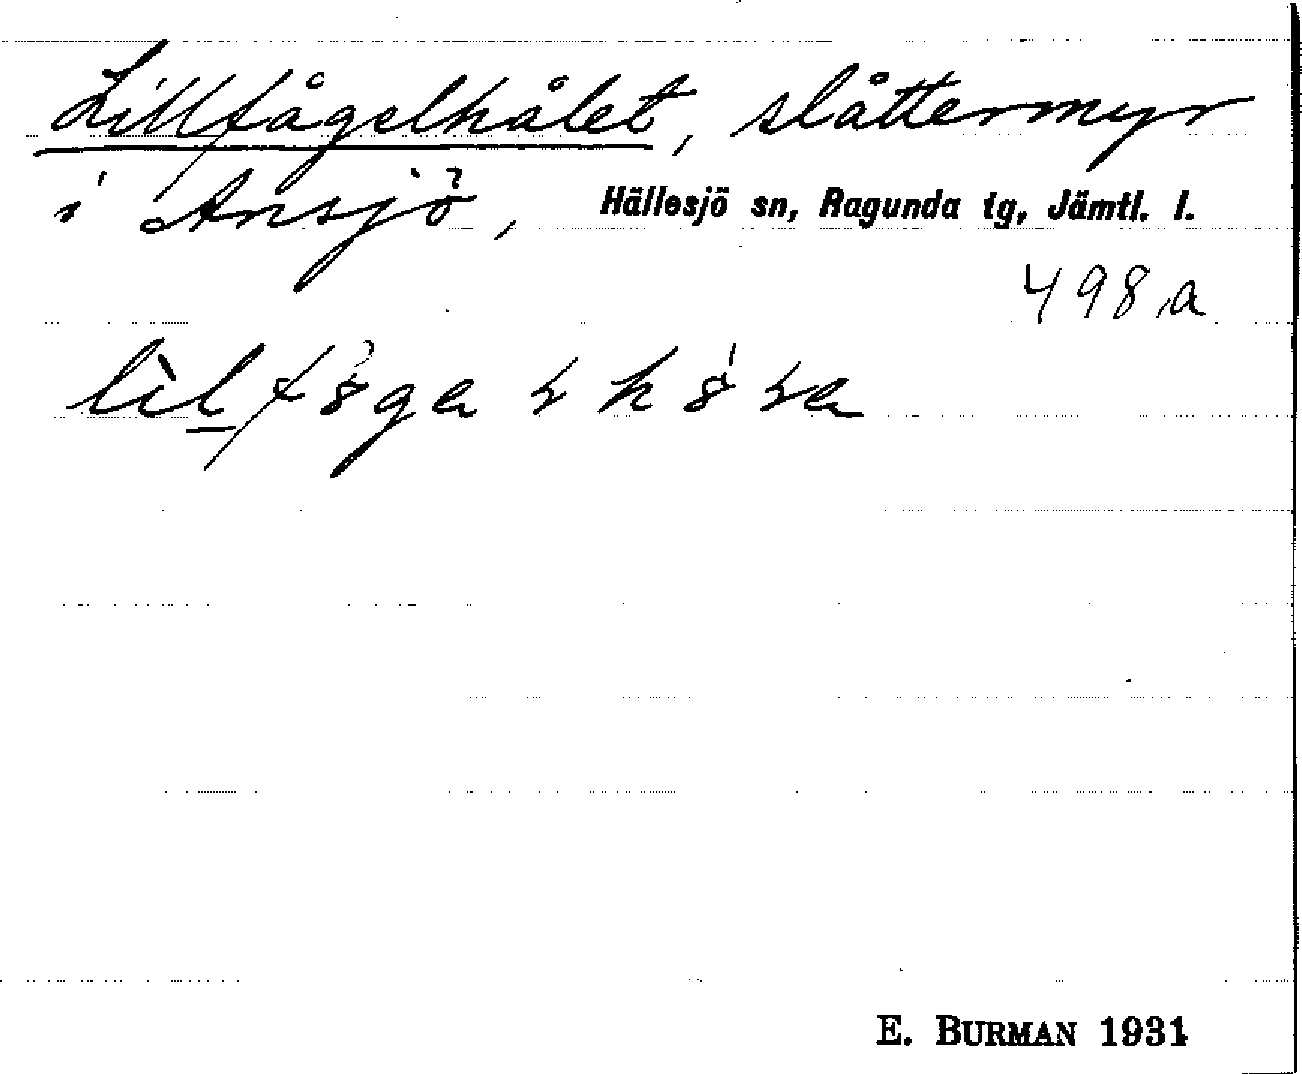 Lillfågelhålet, slåttermyr
i Ansjö, Hällesjö sn, Ragunda tg, Jämtl. l.
498a
E. BURMAN 1931